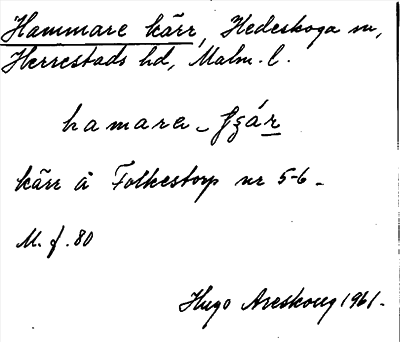 Hammare kärr, Hedeskoga sn,
Herrestads hd, Malm. l.
hamara-ʃzár
kärr å Folkestorp nr 5-6.
M. f. 80
Hugo Areskoug 1961.